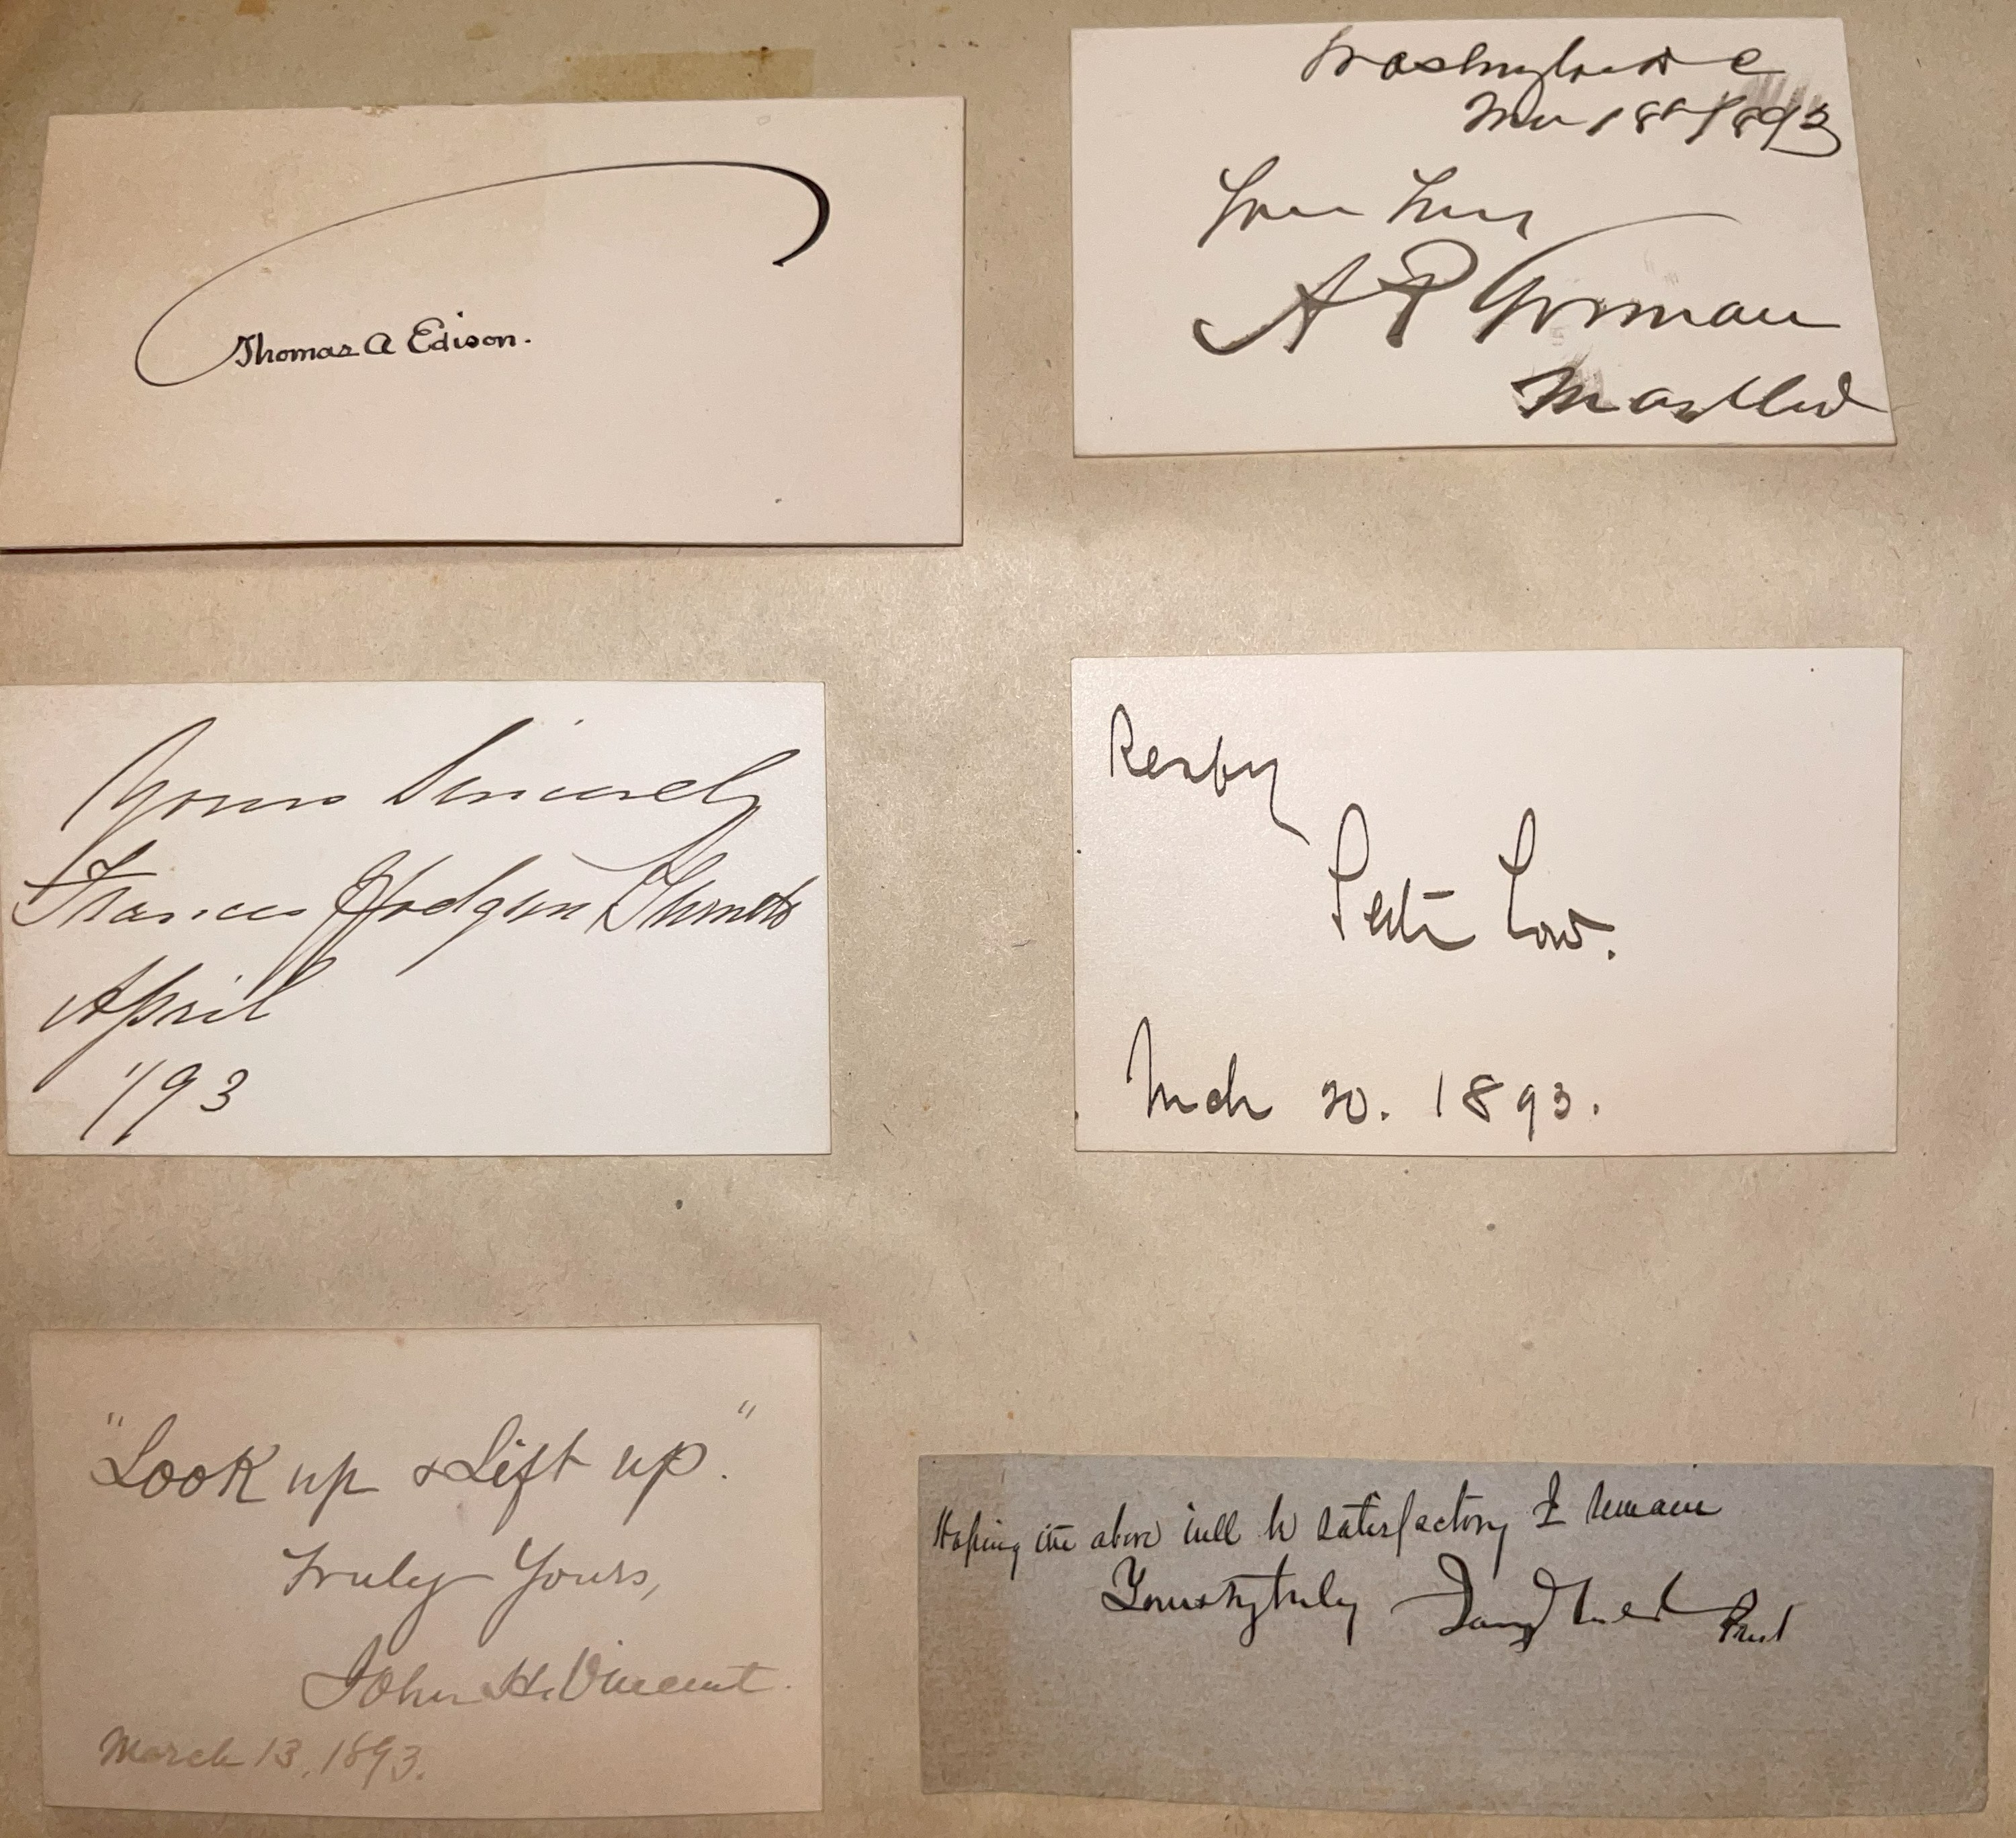 Thomas A Edison.
Washington D C
Mar 18th 1893
Yours Truly
A P Gorman
Maryland
Yours Sincerely
Frances Hodgson Burnett
April
'/93
Respy
Seth Low.
Mch 20. 1893.
"Look up & Lift up."
Truly Yours,
John H. Vincent.
March 13, 1893.
Hoping the above will be satisfactory I remain
Yours very truly